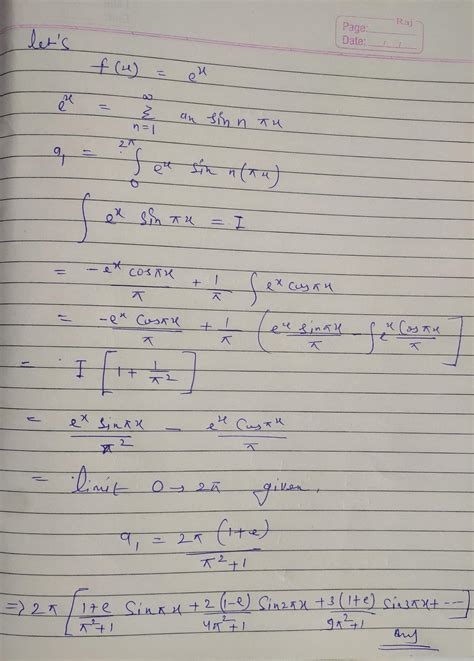 Page:
Date:
let's
f(x) = e^x
e^x = ∞ Σ n=1 an sin n πx
a1 = 2π ∫ 0 e^x sin n(πx)
∫ e^x sin πx = I
= -e^x cosπx / π + 1/π ∫ e^x cosπx
= -e^x cosπx / π + 1/π ( e^x sinπx / π - ∫ e^x cosπx / π ]
= I [ 1 + 1/π² ]
= e^x sinπx / π² - e^x cosπx / π
= limit 0 → 2π given,
a1 = 2π (1+e) / π²+1
⇒ 2π [ 1+e / π²+1 sinπx + 2(1-e) / 4π²+1 sin2πx + 3(1+e) / 9π²+1 sin3πx + --- ]
Ans